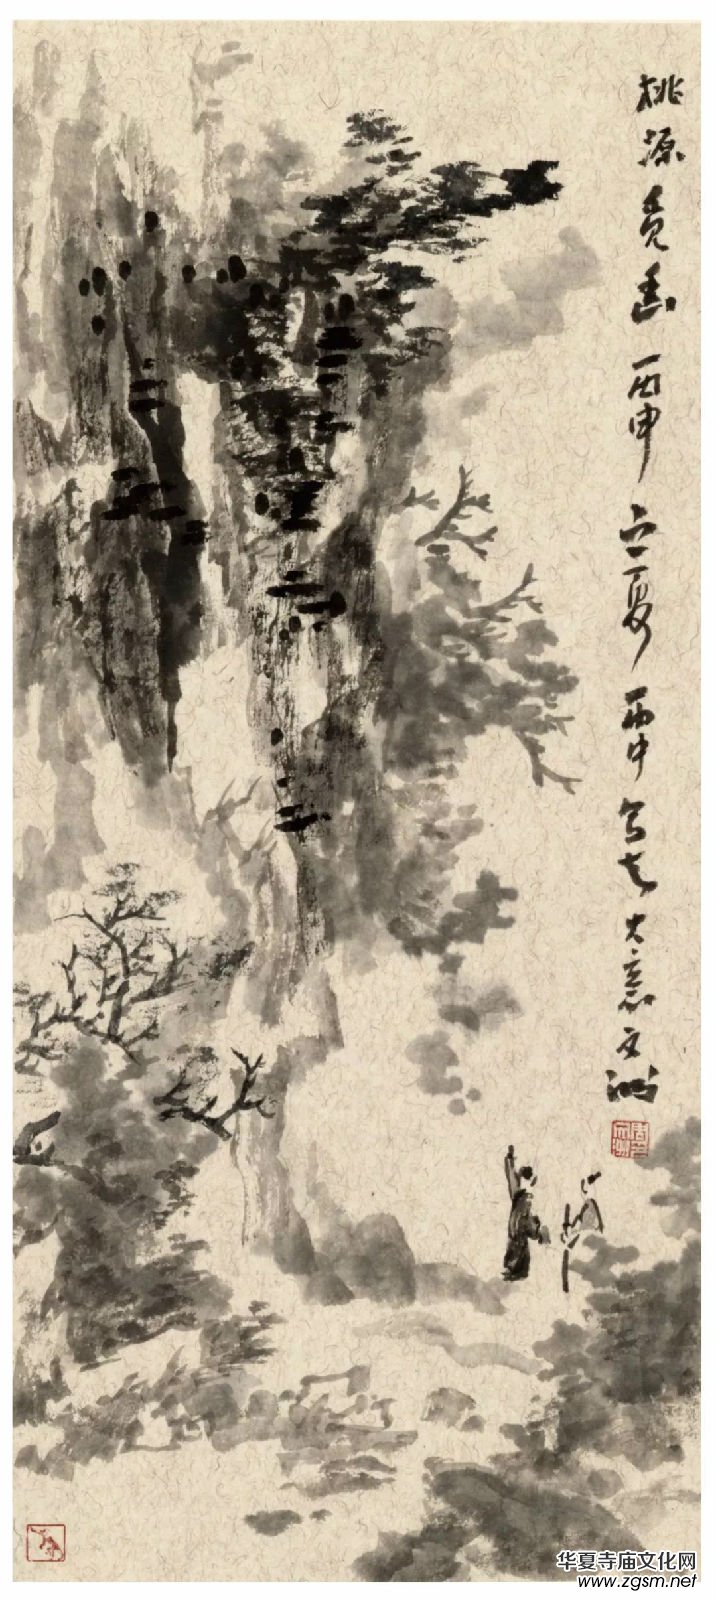 桃源觅幽 丙申立夏 雨中写 大意 文洲
华夏寺庙文化网
www.zgsm.net